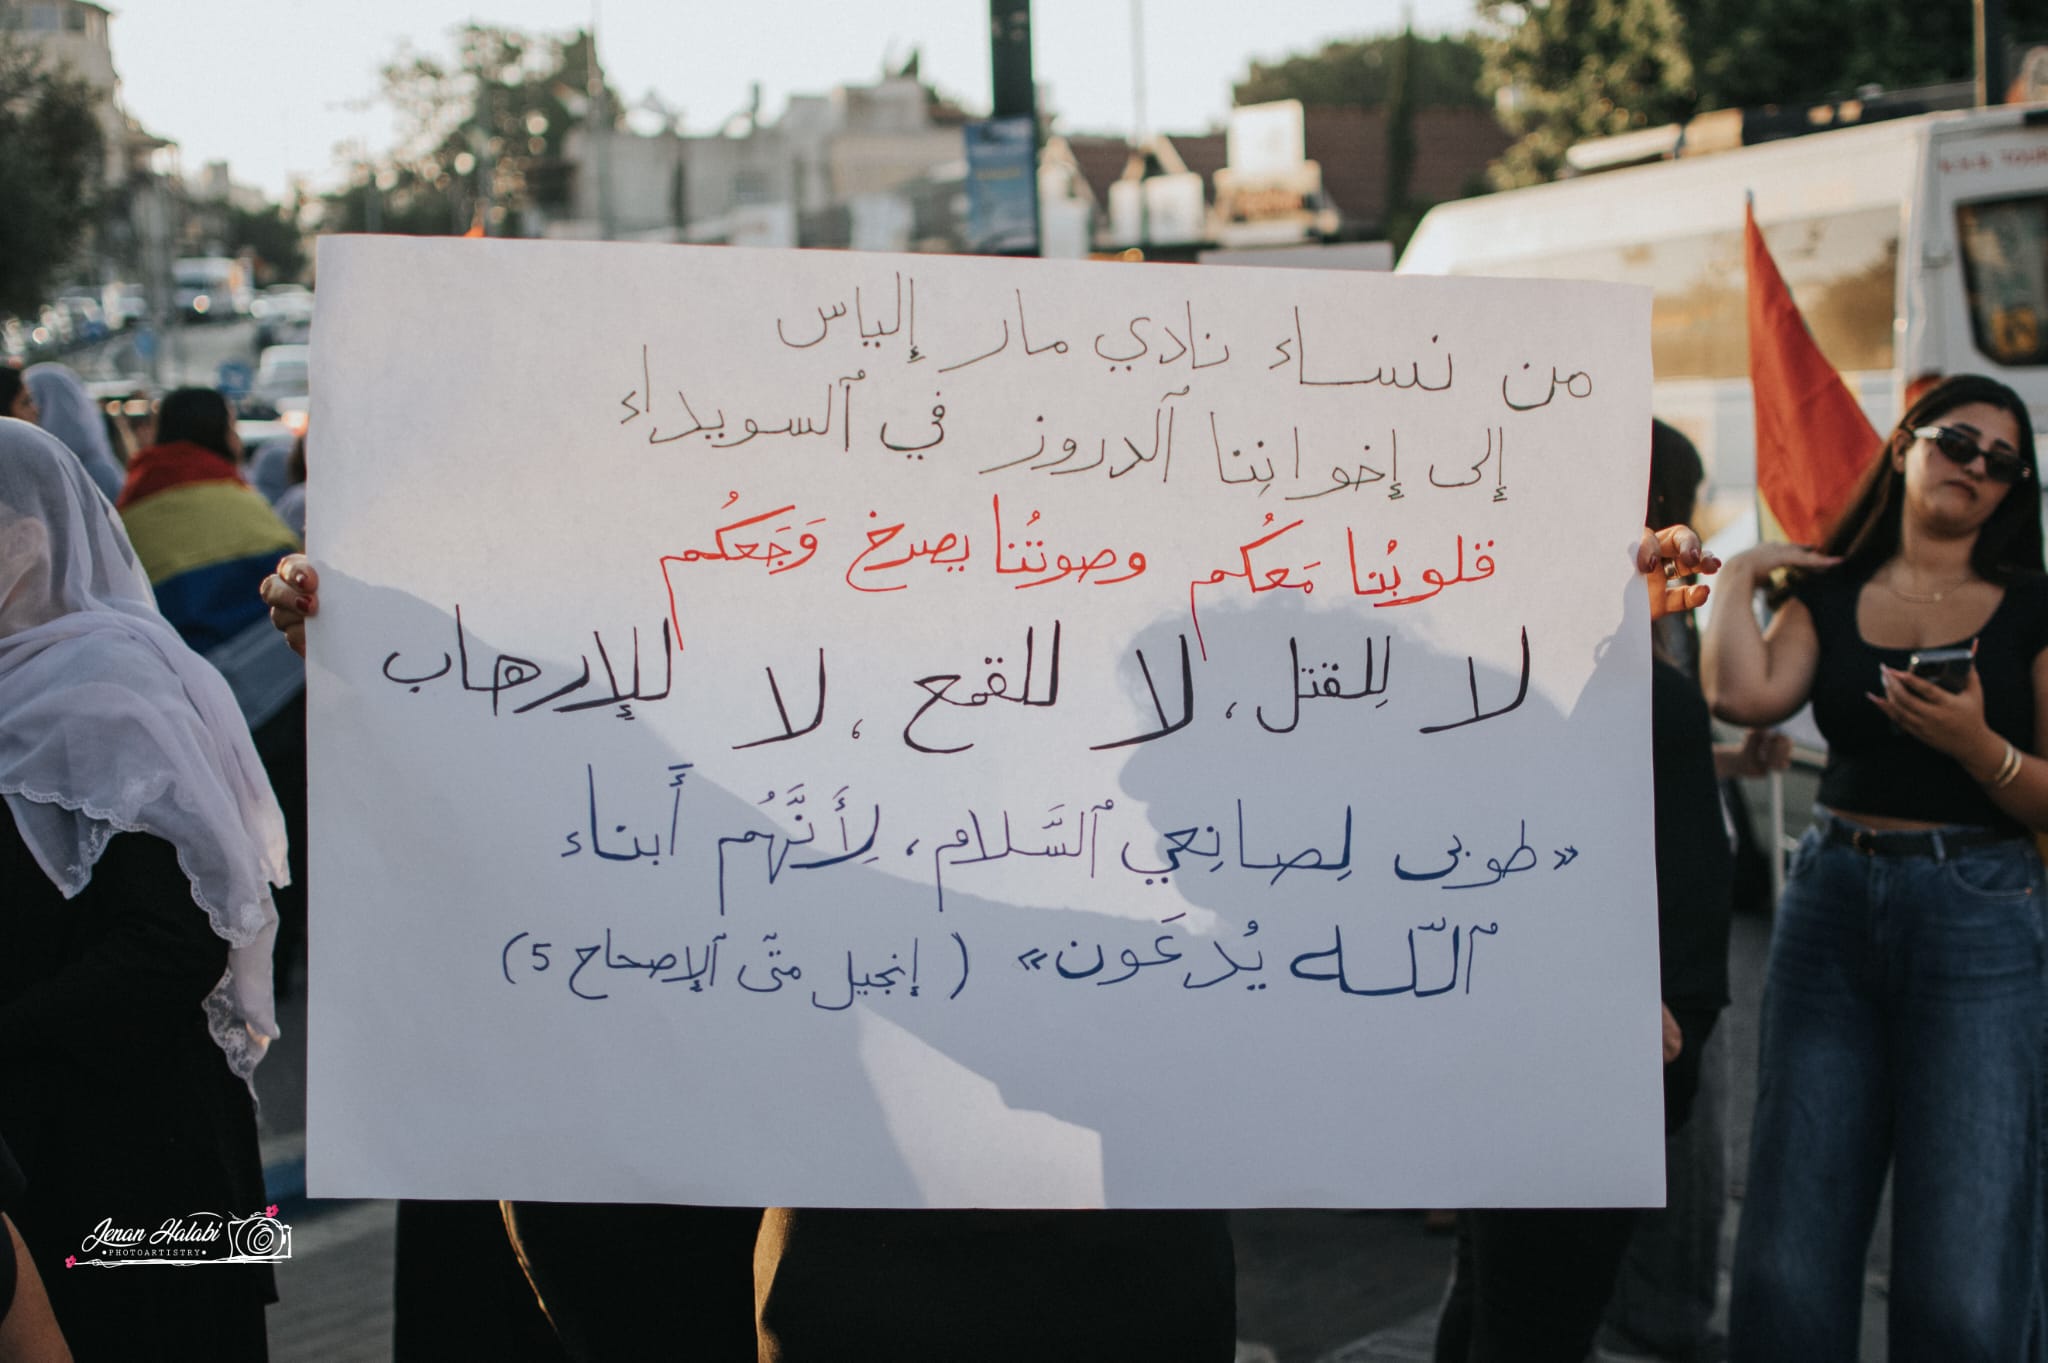 من نساء نادي مار إلياس
إلى إخواننِنا ٱلدروز في ٱلسويداء
قلوبُنا مَعكُم وصوتُنا يصرخ وَجَعكُم
لا لِلقتل، لا للقمع، لا للإرهاب
«طوبى لِصانِعي ٱلسَّلام، لِأَنَّهُم أَبناء
ٱللّه يُدعَون» (إنجيل متّى ٱلإصحاح 5)
Jenan Halabi
•PHOTOARTISTRY•